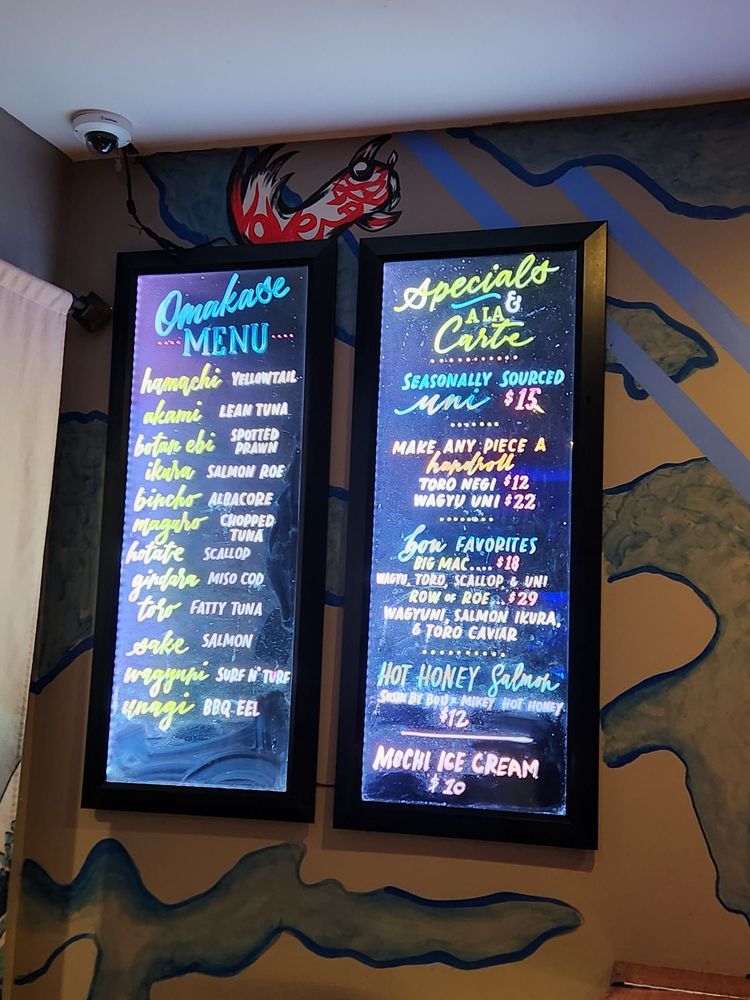 Omakase
MENU
hamachi YELLOWTAIL
akami LEAN TUNA
botan ebi SPOTTED PRAWN
ikura SALMON ROE
bincho ALBACORE
maguro CHOPPED TUNA
hotate SCALLOP
gindara MISO COD
toro FATTY TUNA
sake SALMON
wagyuni SURF N' TURF
unagi BBQ EEL
Specials
&
A LA
Carte
SEASONALLY SOURCED
uni $15
MAKE ANY PIECE A
handroll
TORO NEGI $12
WAGYU UNI $22
bou FAVORITES
BIG MAC.... $18
WAGYU, TORO, SCALLOP & UNI
ROW OF ROE... $29
WAGYUNI, SALMON IKURA,
& TORO CAVIAR
HOT HONEY Salmon
SUSHI BY BOU X MIKEY HOT HONEY
$12
MOCHI ICE CREAM
$10